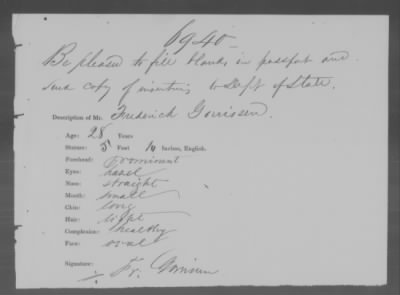 6940
Be pleased to fill blanks in passport and
send copy of insertions to Dept of State.
Description of Mr. Frederick Gorrissen.
Age: 28 Years
Stature: 5 Feet 10 Inches, English.
Forehead: Prominent
Eyes: hazel
Nose: straight
Mouth: small
Chin: long
Hair: light
Complexion: healthy
Face: oval
Signature:
Fr. Gorrissen